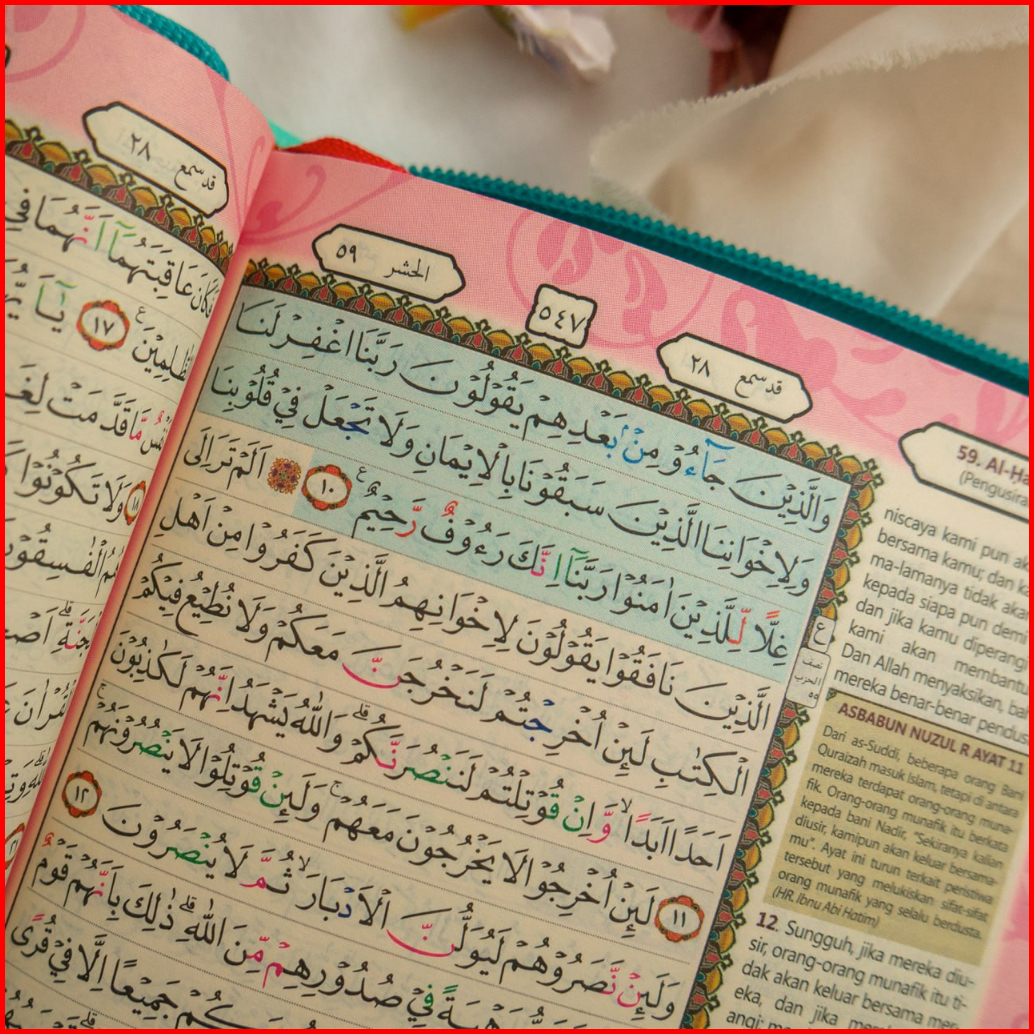 الحشر ٥٩
٥٤٧
قدسمع ٢٨
وَالَّذِيْنَ جَاۤءُوْ مِنْۢ بَعْدِهِمْ يَقُوْلُوْنَ رَبَّنَا اغْفِرْ لَنَا
وَلِاِخْوَانِنَا الَّذِيْنَ سَبَقُوْنَا بِالْاِيْمَانِ وَلَا تَجْعَلْ فِيْ قُلُوْبِنَا
غِلًّا لِّلَّذِيْنَ اٰمَنُوْا رَبَّنَآ اِنَّكَ رَءُوْفٌ رَّحِيْمٌ ࣖ ١٠ ۞ اَلَمْ تَرَ اِلَى
الَّذِيْنَ نَافَقُوْا يَقُوْلُوْنَ لِاِخْوَانِهِمُ الَّذِيْنَ كَفَرُوْا مِنْ اَهْلِ
الْكِتٰبِ لَىِٕنْ اُخْرِجْتُمْ لَنَخْرُجَنَّ مَعَكُمْ وَلَا نُطِيْعُ فِيْكُمْ
اَحَدًا اَبَدًاۙ وَّاِنْ قُوْتِلْتُمْ لَنَنْصُرَنَّكُمْۗ وَاللّٰهُ يَشْهَدُ اِنَّهُمْ لَكٰذِبُوْنَ
١١ لَىِٕنْ اُخْرِجُوْا لَا يَخْرُجُوْنَ مَعَهُمْۚ وَلَىِٕنْ قُوْتِلُوْا لَا يَنْصُرُوْنَهُمْۚ
وَلَىِٕنْ نَّصَرُوْهُمْ لَيُوَلُّنَّ الْاَدْبَارَۙ ثُمَّ لَا يُنْصَرُوْنَ ١٢
فِيْ صُدُوْرِهِمْ مِّنَ اللّٰهِ ۗذٰلِكَ بِاَنَّهُمْ قَوْمٌ
جَمِيْعًا اِلَّا فِيْ قُرًى
ع
نصف
الحزب
٥٥
59. Al-Ha
(Pengusira
niscaya kami pun ak
bersama kamu; dan k
ma-lamanya tidak aka
kepada siapa pun demi
dan jika kamu diperangi
kami akan membantu
Dan Allah menyaksikan, ba
mereka benar-benar pendus
ASBABUN NUZUL R AYAT 11
Dari as-Suddi, beberapa orang Bani
Quraizah masuk Islam, tetapi di antara
mereka terdapat orang-orang muna-
fik. Orang-orang munafik itu berkata
kepada bani Nadir, "Sekiranya kalian
diusir, kamipun akan keluar bersama-
mu". Ayat ini turun terkait peristiwa
tersebut yang melukiskan sifat-sifat
orang munafik yang selalu berdusta.
(HR. Ibnu Abi Hatim)
12. Sungguh, jika mereka diu-
sir, orang-orang munafik itu ti-
dak akan keluar bersama mer
eka, dan jika mereka
قدسمع ٢٨
عَاقِبَتَهُمَآ اَنَّهُمَا فِى
١٧
مَّا قَدَّمَتْ لِغَ
وَلَا تَكُوْنُوْا